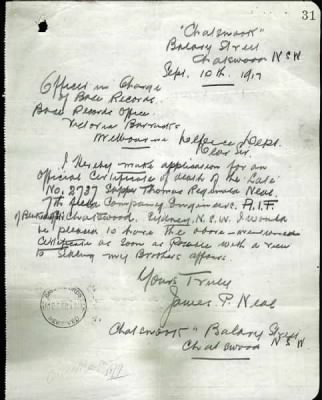 31
"Chatswook"
Balary Street
Chatswood N.S.W
Sept. 10th. 1917
Officer in Charge
of Base Records.
Base Records Office.
Victoria Barracks
Melbourne Defence Dept.
Dear Sir.
I hereby make application for an
Official Certificate of death of the "Late"
No. 2737 Sapper Thomas Reginald Neal.
7th Field Company Engineers. A.I.F.
of Chatswood. Sydney. N.S.W. I would
be pleased to have the above-mentioned
Certificate as soon as Possible with a view
to Settling my Brothers affairs.
Yours Truly
James P. Neal
Chatswook" Balary Street
Chatswood N S W
RECEIVED